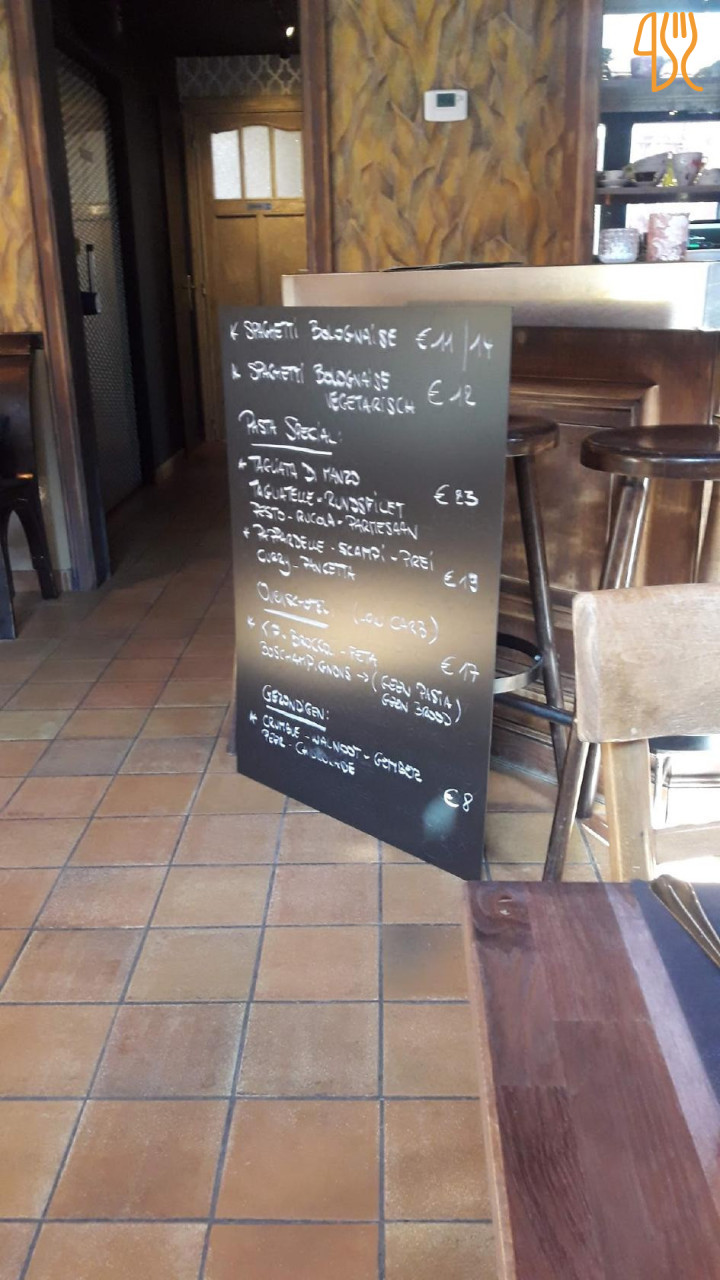 * SPAGHETTI BOLOGNAISE €11/14
* SPAGHETTI BOLOGNAISE
VEGETARISCH €12
PASTA SPECIAL:
* TAGLIATA DI MANZO
TAGLIATELLE - RUNDSFILET €23
PESTO - RUCOLA - PARMESAAN
* PAPPARDELLE - SCAMPI - PREI
CURRY - PANCETTA €19
OVENSCHOTEL (LOW CARB)
* KIP - BROCCOLI - FETA
BOSCHAMPIGNONS → (GEEN PASTA €17
GEEN BROOD)
GEZONDIGEN:
* CRUMBLE - WALNOOT - GEMBER
PEER - CHOCOLADE €8